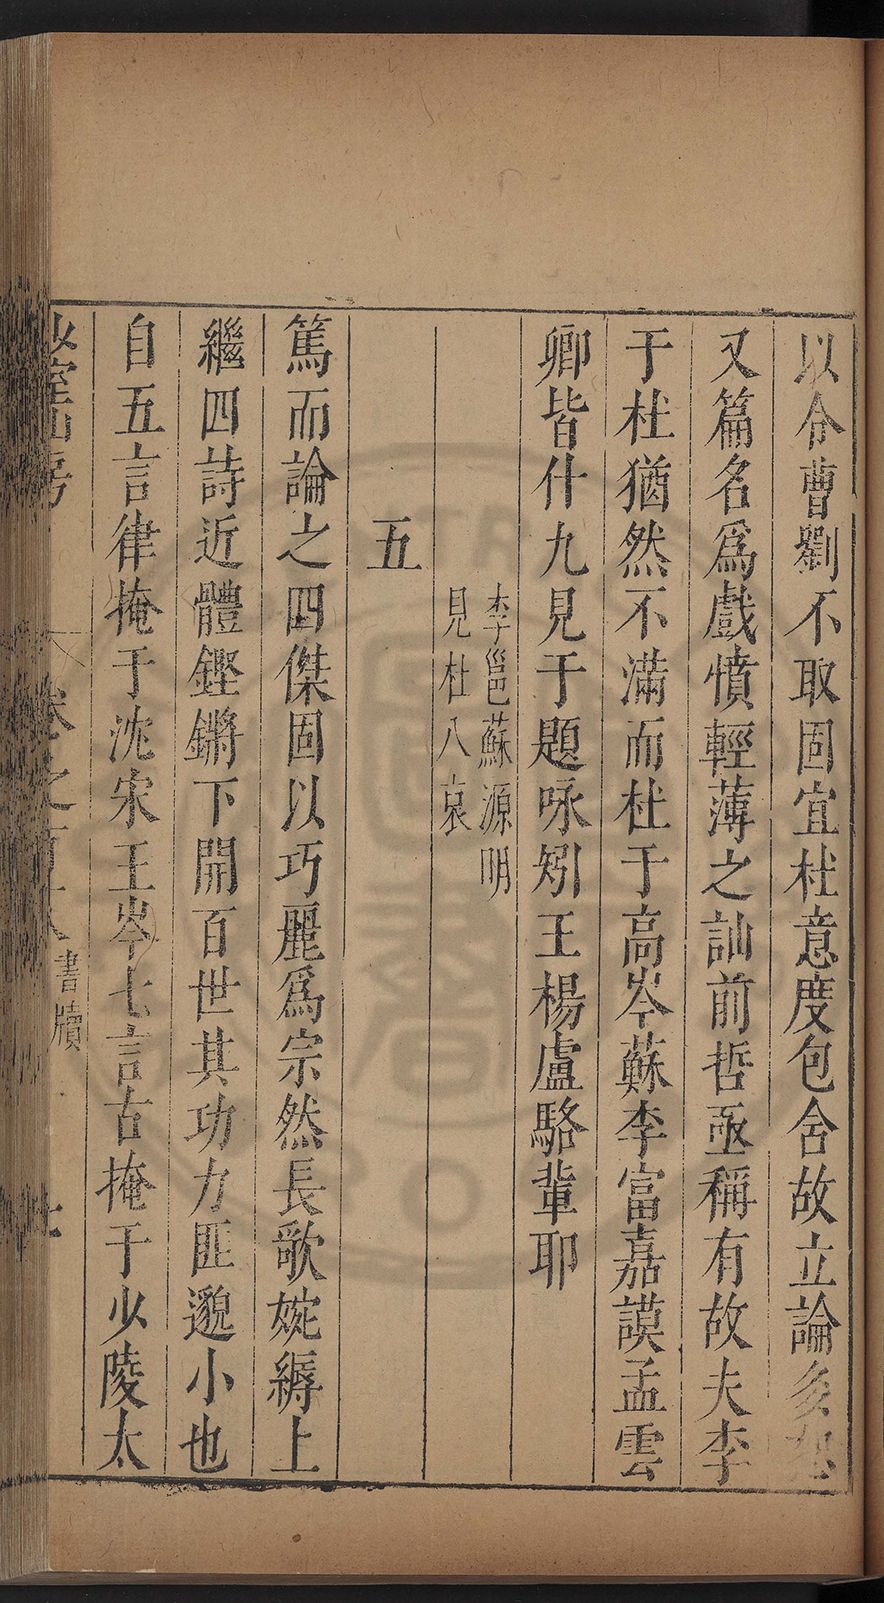 以令曹劉不取固宜杜意度包含故立論多恕
又篇名爲戲憤輕薄之訕前哲亟稱有故夫李
于杜猶然不滿而杜于高岑蘇李富嘉謨孟雲
卿皆什九見于題咏矧王楊盧駱輩耶
李邕蘇源明
見杜八哀
五
篤而論之四傑固以巧麗爲宗然長歌婉縟上
繼四詩近體鏗鏘下開百世其功力匪邈小也
自五言律掩于沈宋王岑七言古掩于少陵太
少室山房
卷之百十八 書牘 七